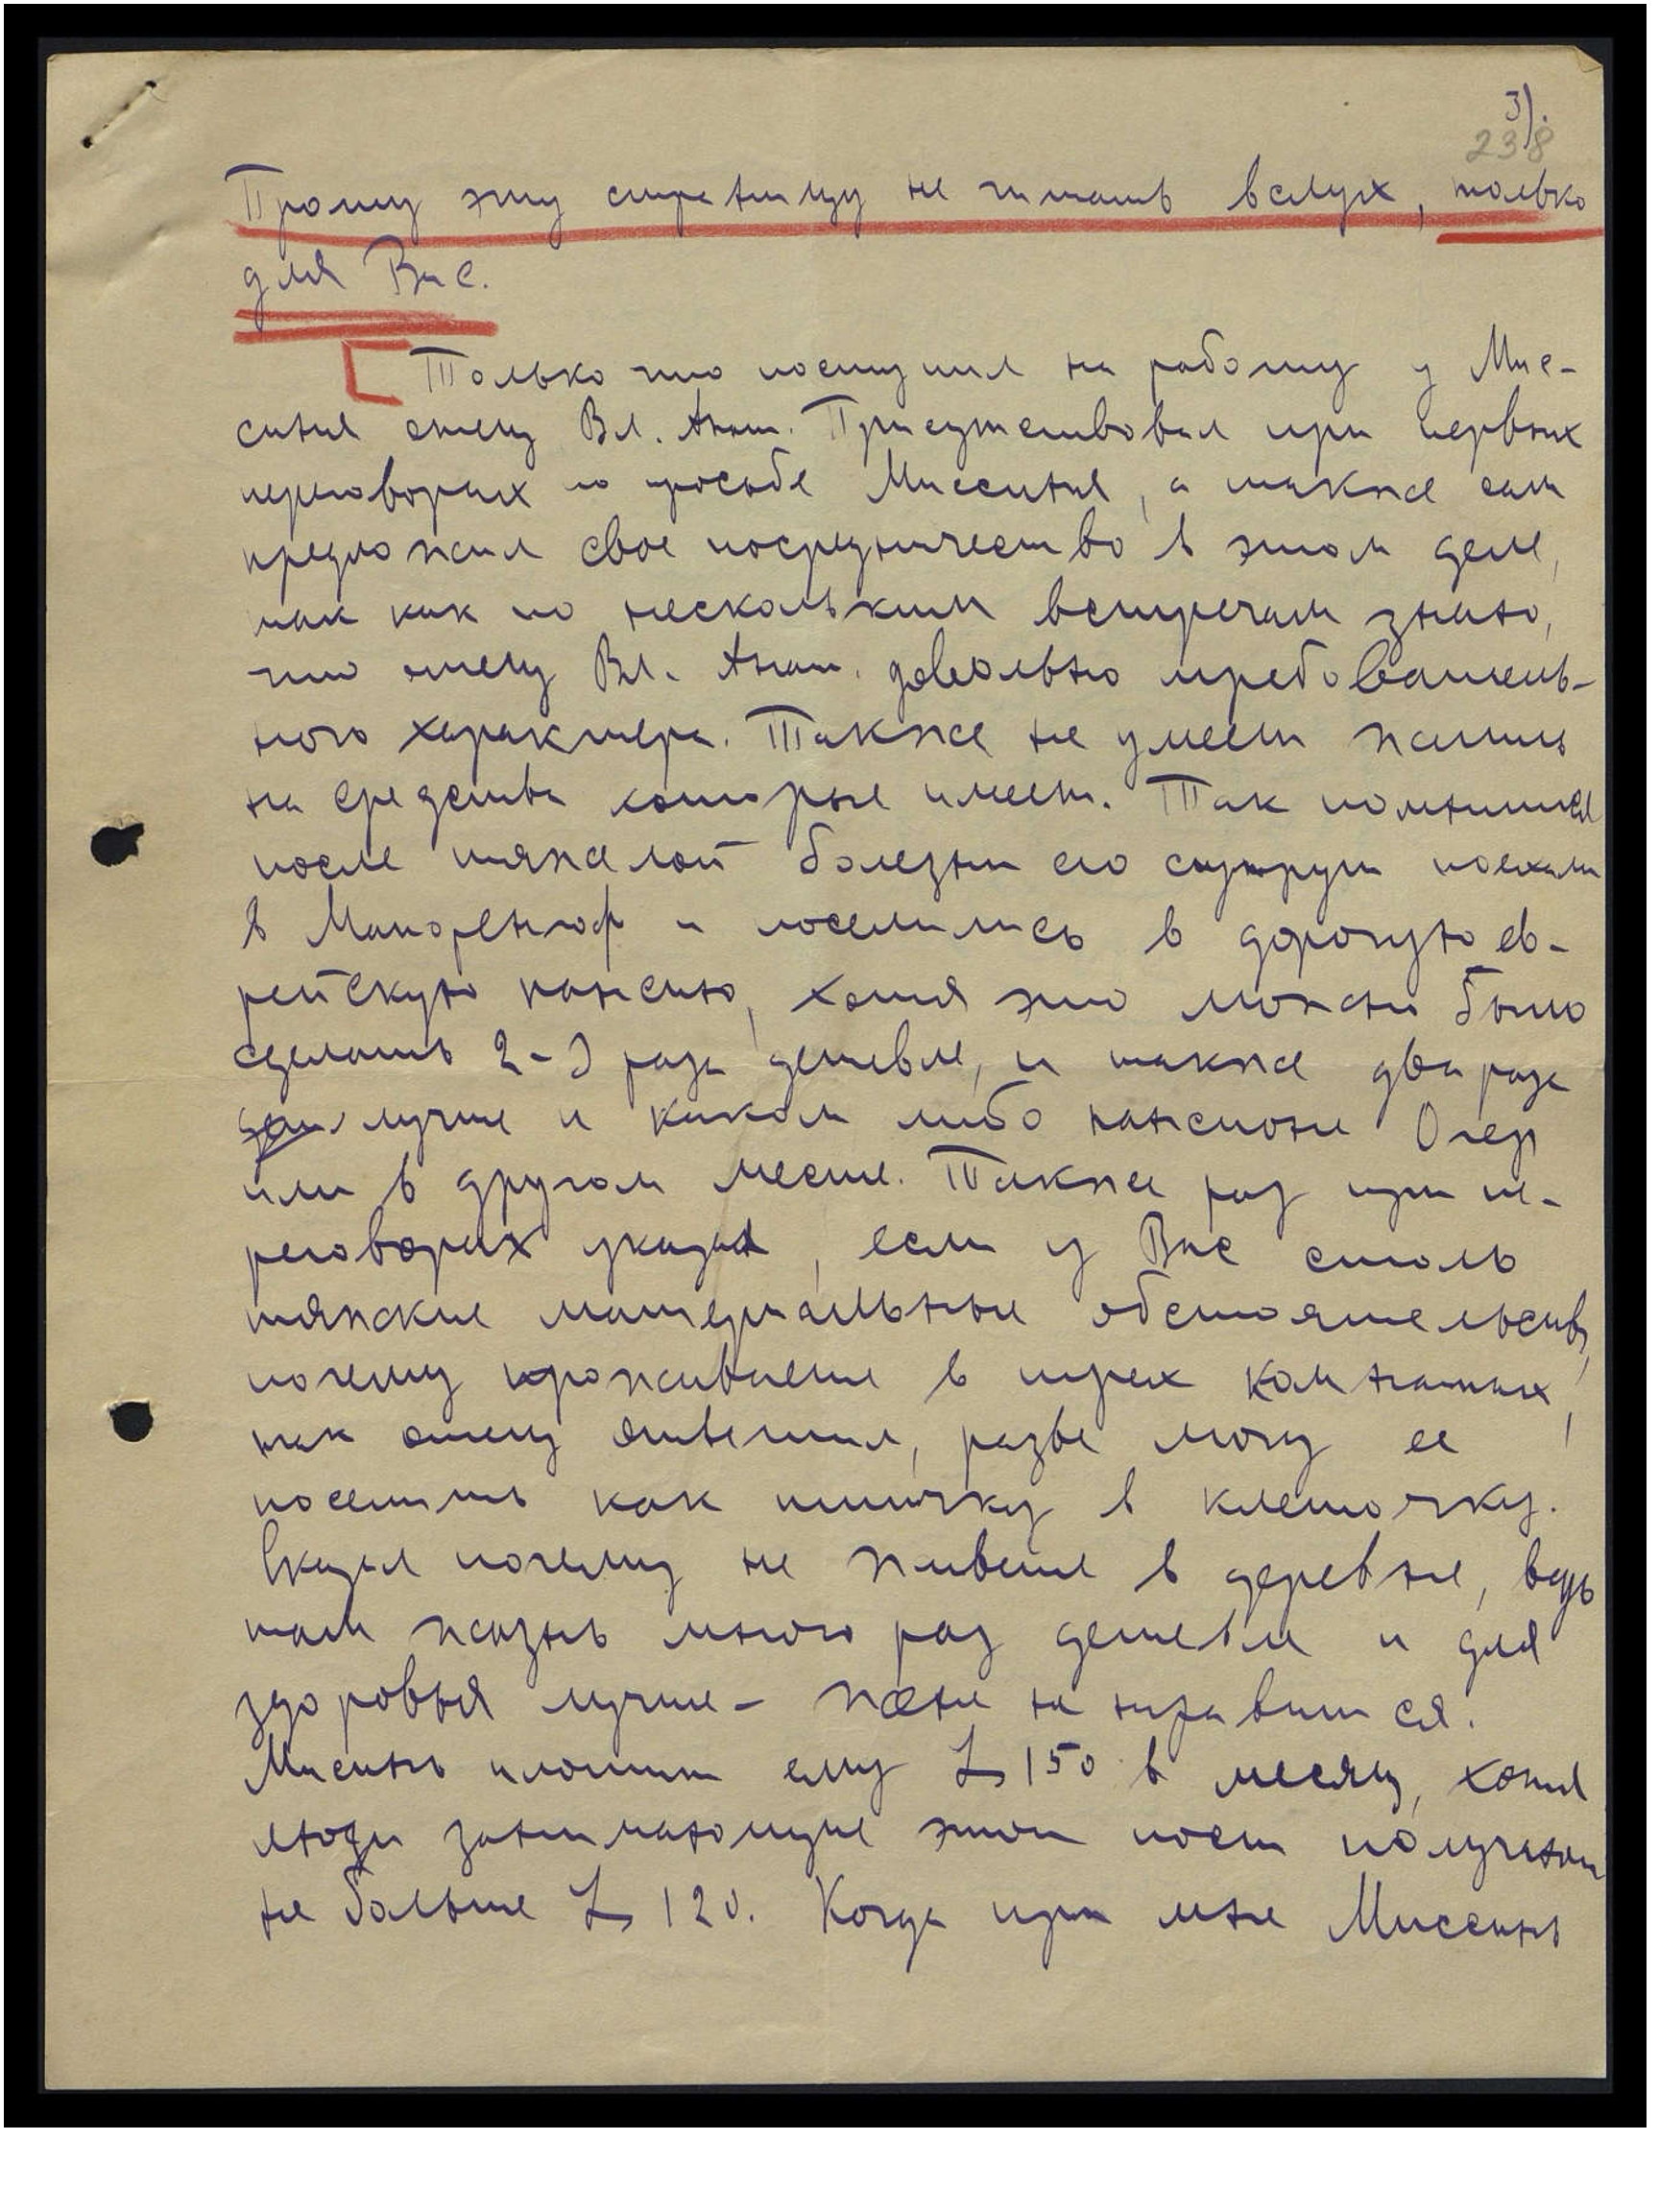 3).
238
Прошу эту страницу не читать вслух, только
для Вас.
Только что поступил на работу у Мис-
синя отец Вл. Анат. Присутствовал при первых
переговорах по просьбе Миссиня, а также сам
предложил свое посредничество в этом деле,
так как по нескольким встречам знаю,
что отец Вл. Анат. довольно требователь-
ного характера. Также не умеет жить
на средства которые имеет. Так помнится
после тяжелой болезни его супруги поехали
в Маиоренгоф и поселились в дорогую ев-
рейскую пансию, хотя это можно было
сделать 2-3 раза дешевле, и также два раза
лучше и каком либо пансионе Огер
или в другом месте. Также раз при пе-
реговорах указал, если у Вас столь
тяжские материальные обстоятельства,
почему проживаете в трех комнатах,
так отец ответил, разве могу ее
поселить как птичку в клеточку.
Сказал почему не живете в деревне, ведь
там жизнь много раз дешевле и для
здоровья лучше – жене не нравится.
Мисинь платит ему Ls 150 в месяц, хотя
люди занимающие этот пост получают
не больше Ls 120. Когда при мне Миссинь